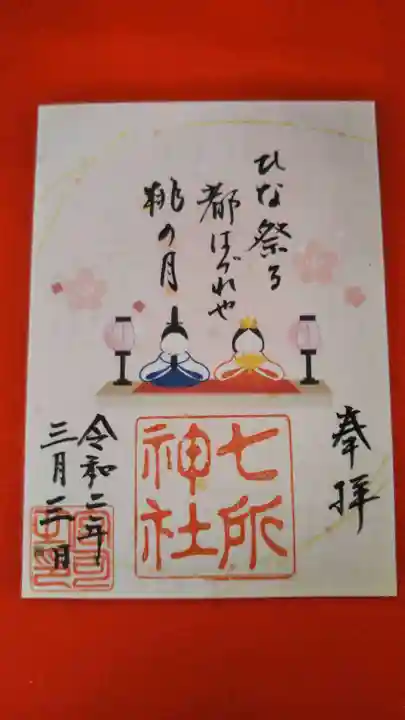 奉拝
ひな祭る
都はづれや
桃の月
七所
神社
令和二年
三月三日